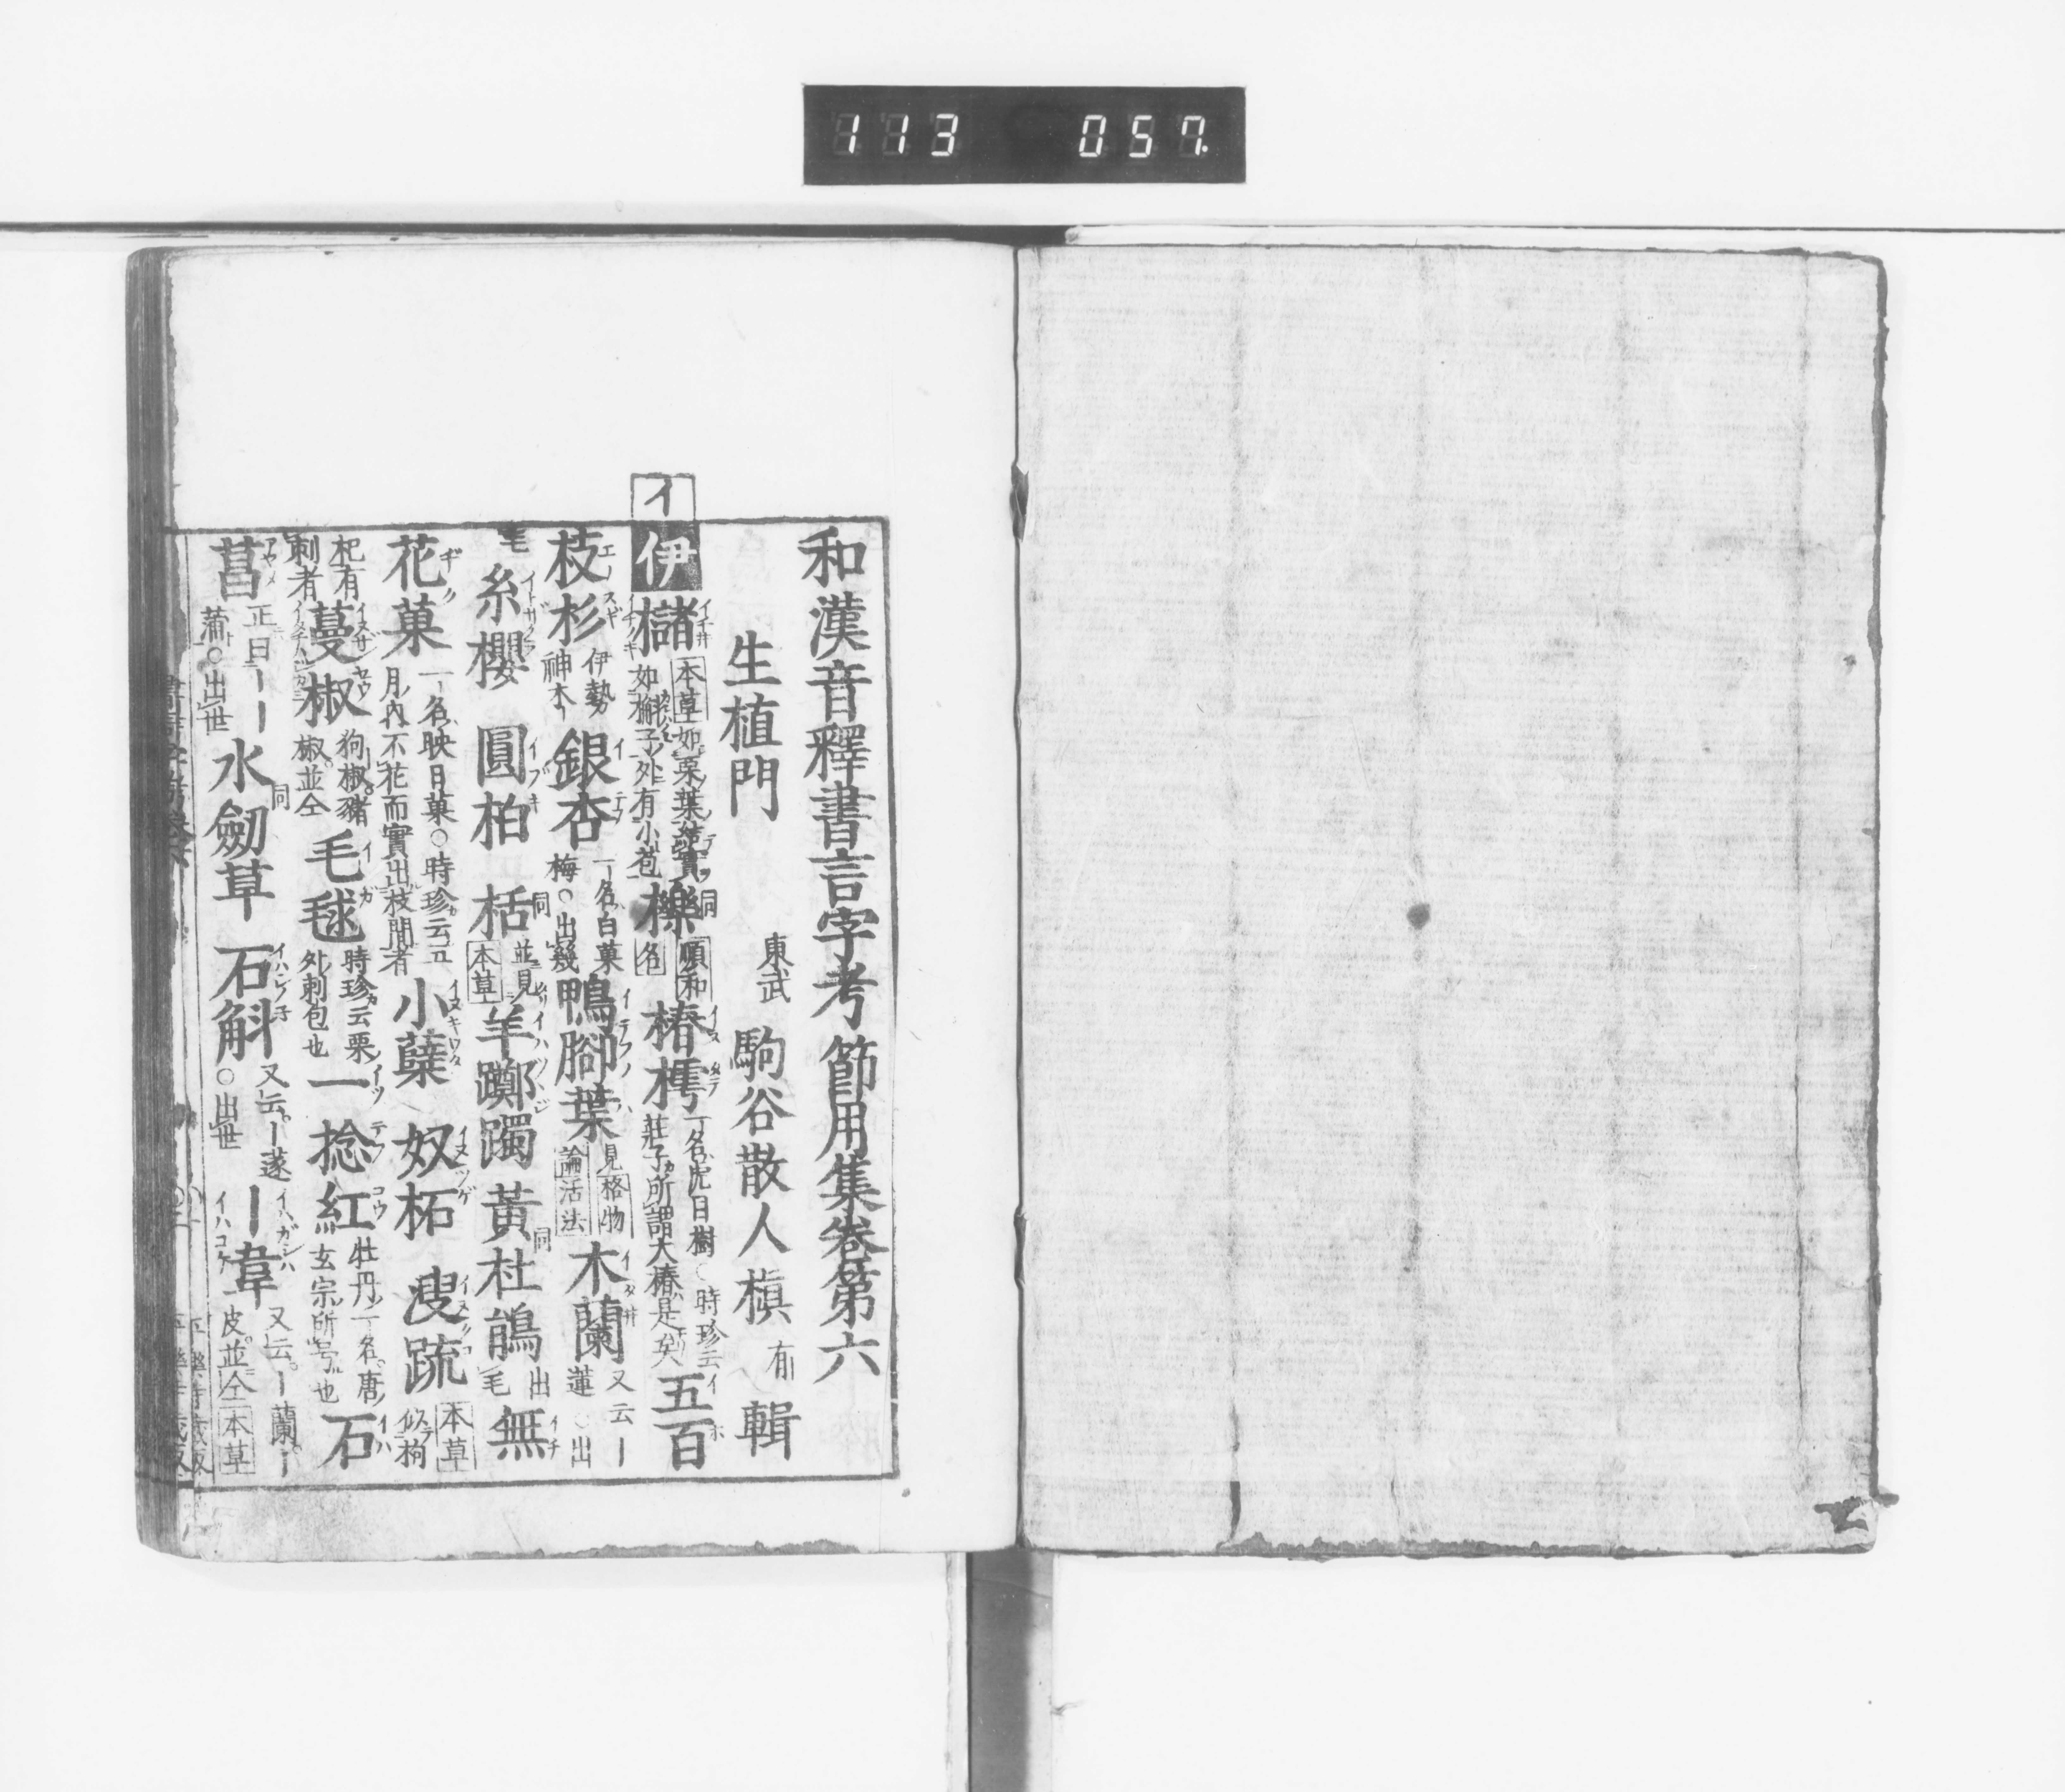 113 057
和漢音釋書言字考節用集卷第六
生植門 東武 駒谷散人槇 有 輯
イ
伊 櫧 本草 如栗葉結實如槲子外有小苞 櫟 同 順和名 椿樗 一名虎目樹○時珍云莊子所謂大椿是矣 五百
枝杉 伊勢神木 銀杏 一名白菓梅○出幾 鴨腳葉 見格物論活法 木蘭 又云ー蓮○出
毛 糸櫻 圓柏 栝 同 並見本草 羊躑躅 黃杜鵑 同 出毛 無
花菓 一名映日菓○時珍云五月內不花而實出枝間者 小蘗 奴柘 溲疏 本草 似枸
杞有刺者 蔓椒 狗椒豬椒並仝 毛毬 時珍云栗外刺包也 一捻紅 牡丹一名唐玄宗所号也 石
菖 正曰ーー蒲○出世 水劒草 同 石斛 又云ー蓫○出世 ー韋 又云ー蘭ー皮並仝本草